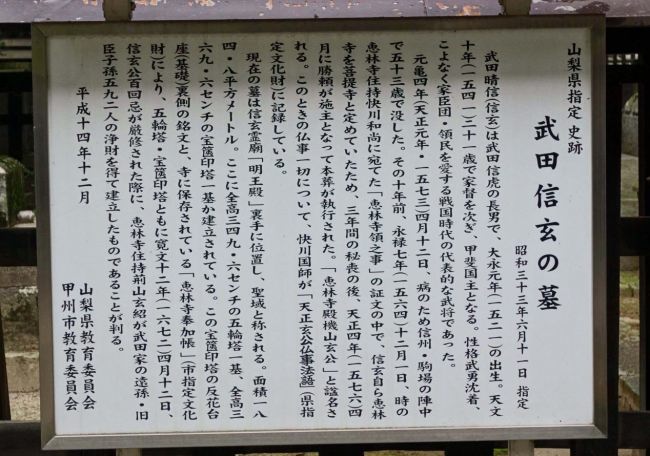 山梨県指定 史跡
武田信玄の墓
昭和三十三年六月十一日 指定
武田晴信(信玄)は武田信虎の長男で、大永元年(一五二一)の出生。天文
十年(一五四一)二十一歳で家督を次ぎ、甲斐国主となる。性格武勇沈着、
こよなく家臣団・領民を愛する戦国時代の代表的な武将であった。
元亀四年(天正元年・一五七三)四月十二日、病のため信州・駒場の陣中
で五十三歳で没した。その十年前、永禄七年(一五六四)十二月一日、時の
恵林寺住持快川和尚に宛てた「恵林寺領之事」の証文の中で、信玄自ら恵林
寺を菩提寺と定めていたため、三年間の秘喪の後、天正四年(一五七六)四
月に勝頼が施主となって本葬が執行された。「恵林寺殿機山玄公」と諡名さ
れる。このときの仏事一切について、快川国師が「天正玄公仏事法語」(県指
定文化財)に記録している。
現在の墓は信玄霊廟「明王殿」裏手に位置し、聖域と称される。面積一八
四・八平方メートル。ここに全高三四九・六センチの五輪塔一基、全高三
六九・六センチの宝篋印塔一基か建立されている。この宝篋印塔の反花台
座(基礎)裏側の銘文と、寺に保存されている「恵林寺奉加帳」(市指定文化
財)により、五輪塔・宝篋印塔ともに寛文十二年(一六七二)四月十二日、
信玄公百回忌が厳修された際に、恵林寺住持前山玄紹が武田家の遺孫・旧
臣子孫五九二人の浄財を得て建立したものであることが判る。
平成十四年十二月
山梨県教育委員会
甲州市教育委員会